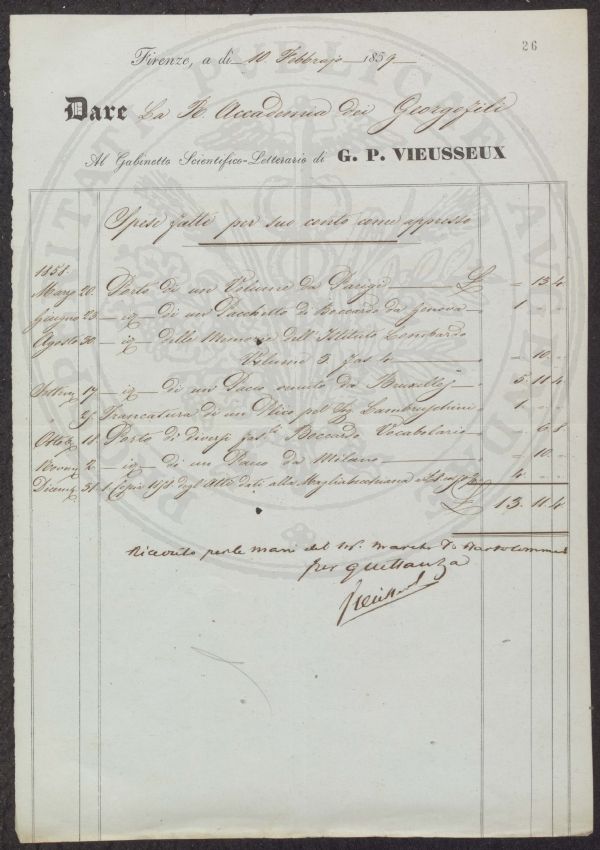 26
Firenze, a dì 10 Febbrajo 1859
Dare La R. Accademia dei Georgofili
Al Gabinetto Scientifico-Letterario di G. P. VIEUSSEUX
Spese fatte per suo conto come appresso
1858.
Marzo 20. Porto di un Volume da Parigi £ " 13 4
Giugno 23 - id - di un Pacchetto di Boccardo da Genova 1 " "
Agosto 30 - id - delle Memorie dell'Istituto Lombardo
Volume 3 fas 4 " 10 "
Settem 17 - id - di un Pacco venuto da Bruxelles 5. 11 4
" 25 Francatura di un Plico pel Sig Lambruschini 1 " "
Ottob 11 Porto di diversi fasli Boccardo Vocabolario " 6 8
Novem 2 - id - di un Pacco da Milano " 10 "
Dicem 31 1 Copia degli Atti dati alla Magliabechiana 4 " "
£ 13. 11 4
Ricevuto per le mani del Sr. March.
per quittanza
Vieusseux
PROSPERITATI PUBLICAE AUGENDAE